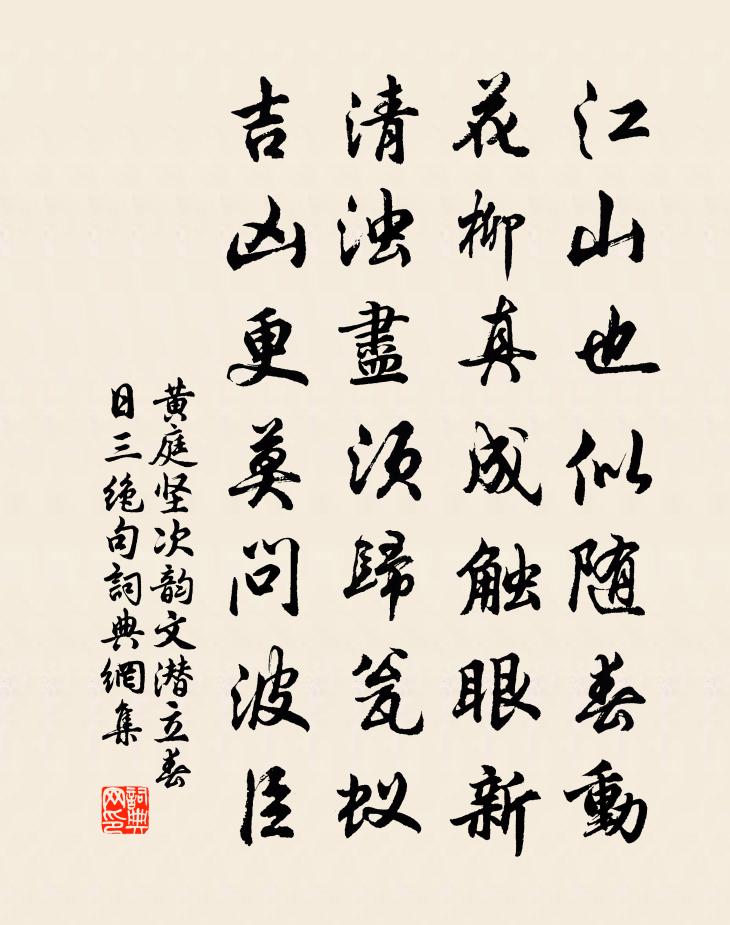 江山也似随春動
花柳真成触眼新
清浊盡须歸瓮蚁
吉凶更莫问波臣
黄庭坚次韵文潜立春
日三绝句詞典網集
詞典网印